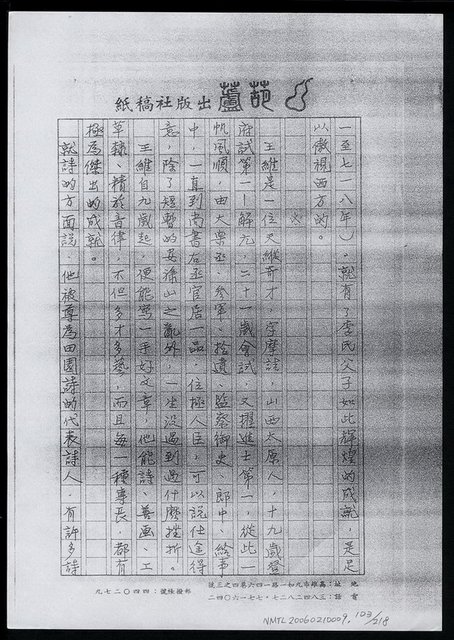 葫蘆出版社稿紙
一至七一八年)。就有了李氏父子如此輝煌的成就,是足
以傲視西方的。
王維是一位天縱奇才,字摩詰,山西太原人,十九歲登
府試第一—解元,二十一歲會試,又擢進士第一,從此一
帆風順,由大樂丞、參軍、拾遺、監察御史、郎中、給事
中,一直到尚書右丞官居一品,位極人臣,可以說仕途得
意,除了短暫的安祿山之亂外,一生沒遇到過什麼挫折。
王維自九歲起,便能寫一手好文章,他能詩、善畫、工
草隸、精於音律,不但多才多藝,而且每一種專長,都有
極為傑出的成就。
就詩的方面說,他被尊為田園詩的代表詩人,有許多詩
地址:高雄市九如一路一四六巷四之三號
電話:三八四二八二七・七七一六〇四二
郵撥帳號:四四〇二七九
NMTL20060210009, 103/218